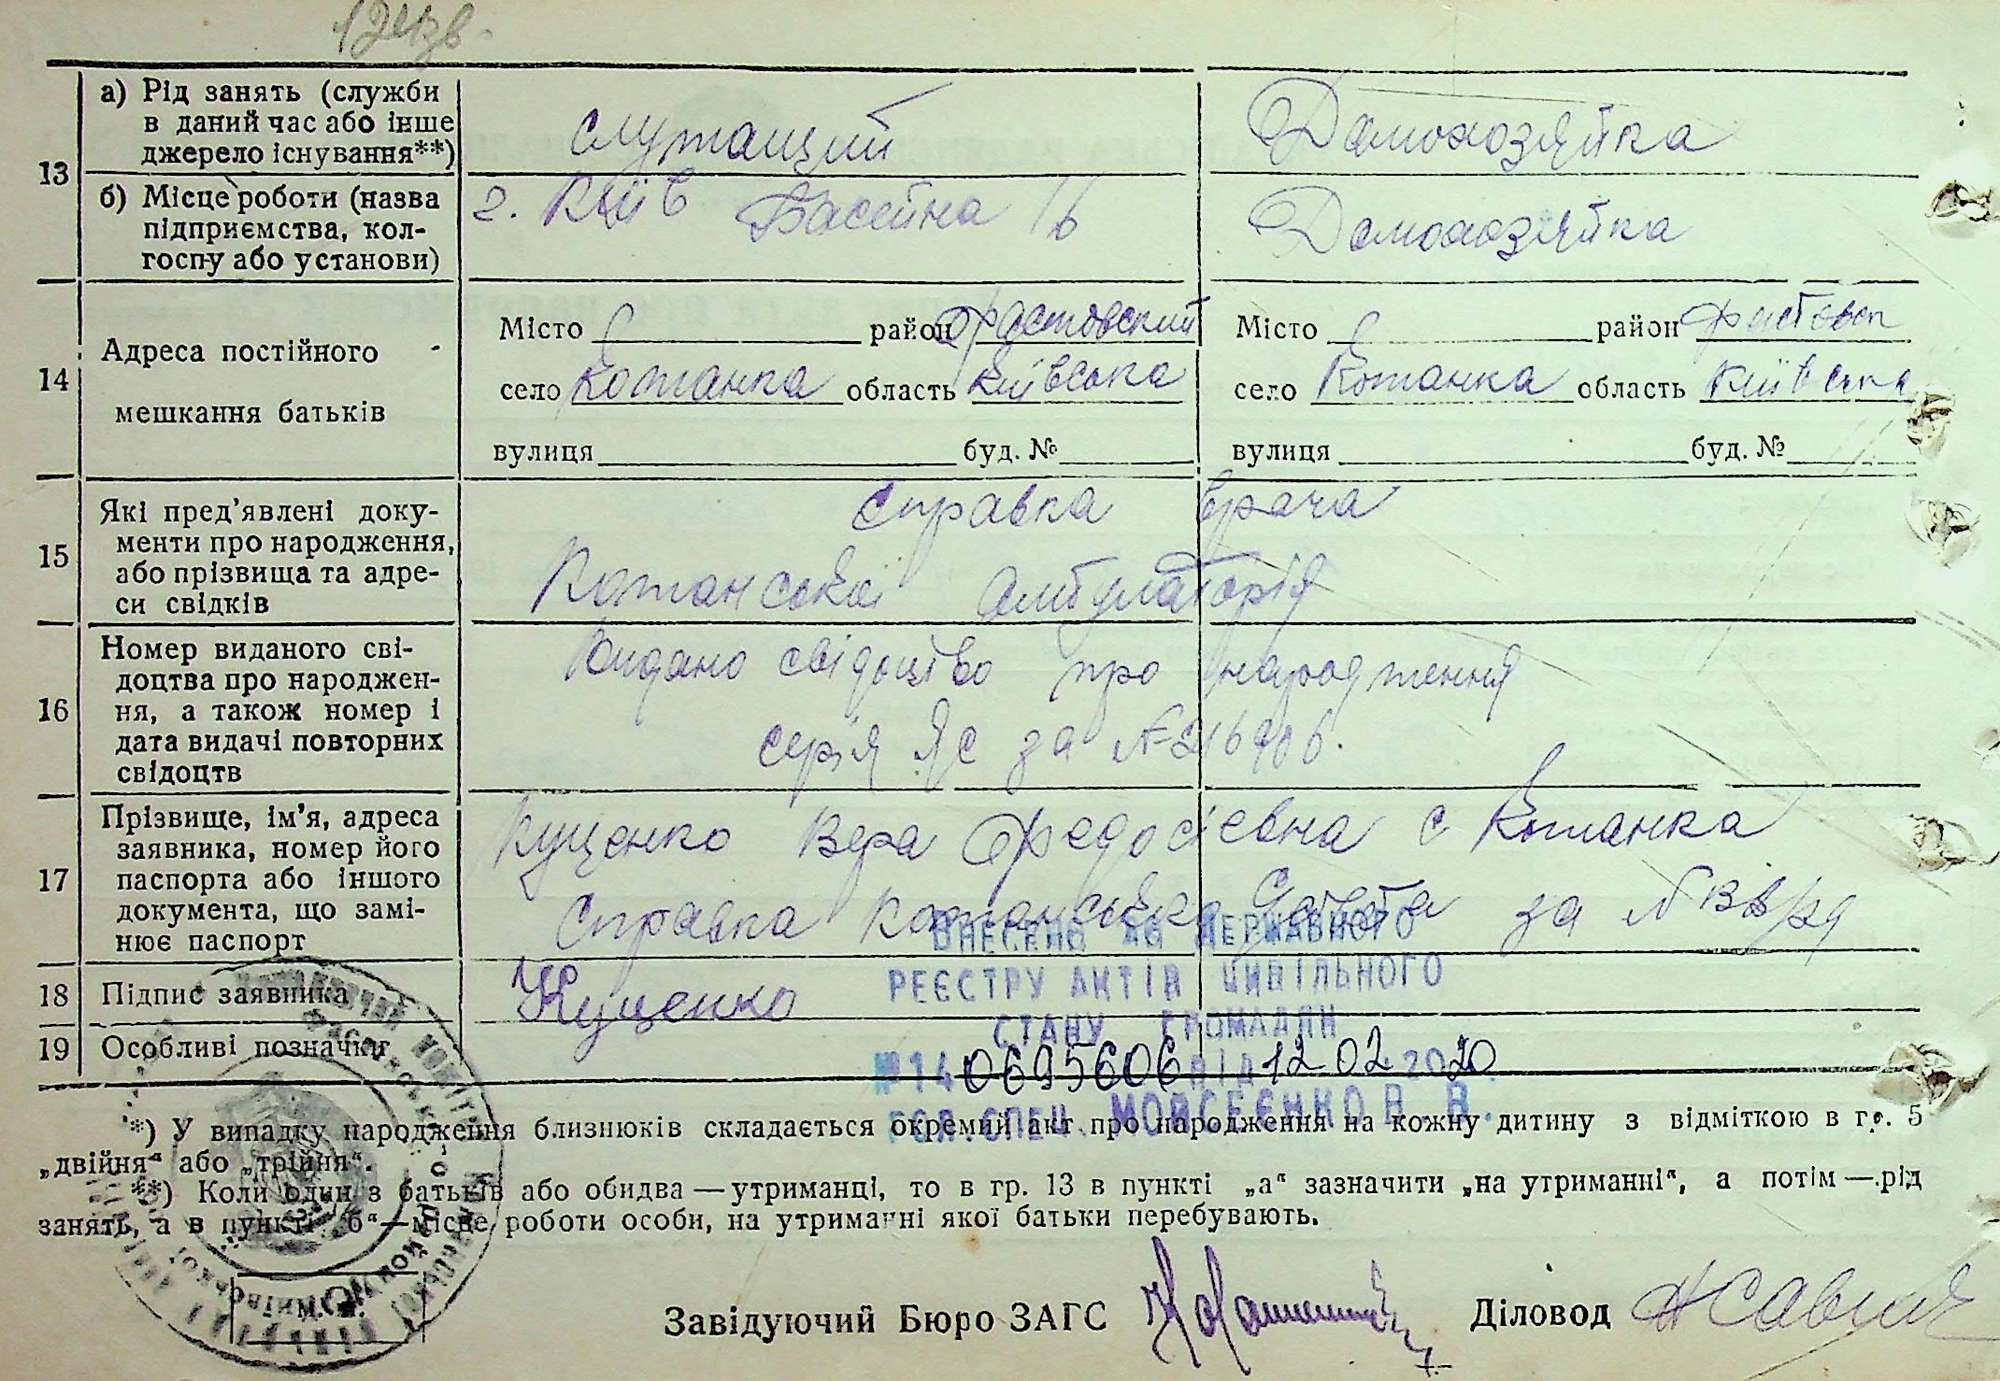 13
а) Рід занять (служби
в даний час або інше
джерело існування**)
служащий
Домохозяйка
б) Місце роботи (назва
підприємства, кол-
госпу або установи)
г. Київ Басейна 1/6
Домохозяйка
14
Адреса постійного
мешкання батьків
Місто район Фастовский
село Кожанка область Київська
вулиця буд. №
Місто район Фастовск
село Кожанка область Київська
вулиця буд. №
15
Які пред'явлені доку-
менти про народження,
або прізвища та адре-
си свідків
Справка врача
Кожанської амбулаторія
16
Номер виданого сві-
доцтва про народжен-
ня, а також номер і
дата видачі повторних
свідоцтв
Видано свідоцтво про народження
серія ЯС за №
17
Прізвище, ім'я, адреса
заявника, номер його
паспорта або іншого
документа, що замі-
нює паспорт
Кущенко Вера Федосієвна с Кожанка
Справка за №
18
Підпис заявника
Кущенко
19
Особливі позначки
ВНЕСЕНО ДО ДЕРЖАВНОГО
РЕЄСТРУ АКТІВ ЦИВІЛЬНОГО
СТАНУ ГРОМАДЯН
№ 14 0695606 ВІД 12 02 2020.
ГОЛ.СПЕЦ. МОЙСЕЄНКО В. В.
*) У випадку народження близнюків складається окремий акт про народження на кожну дитину з відміткою в гр. 5
„двійня“ або „трійня“.
**) Коли один з батьків або обидва — утриманці, то в гр. 13 в пункті „а“ зазначити „на утриманні“, а потім — рід
занять, а в пункті „б“ — місце роботи особи, на утриманні якої батьки перебувають.
М. П.
Завідуючий Бюро ЗАГС
Діловод